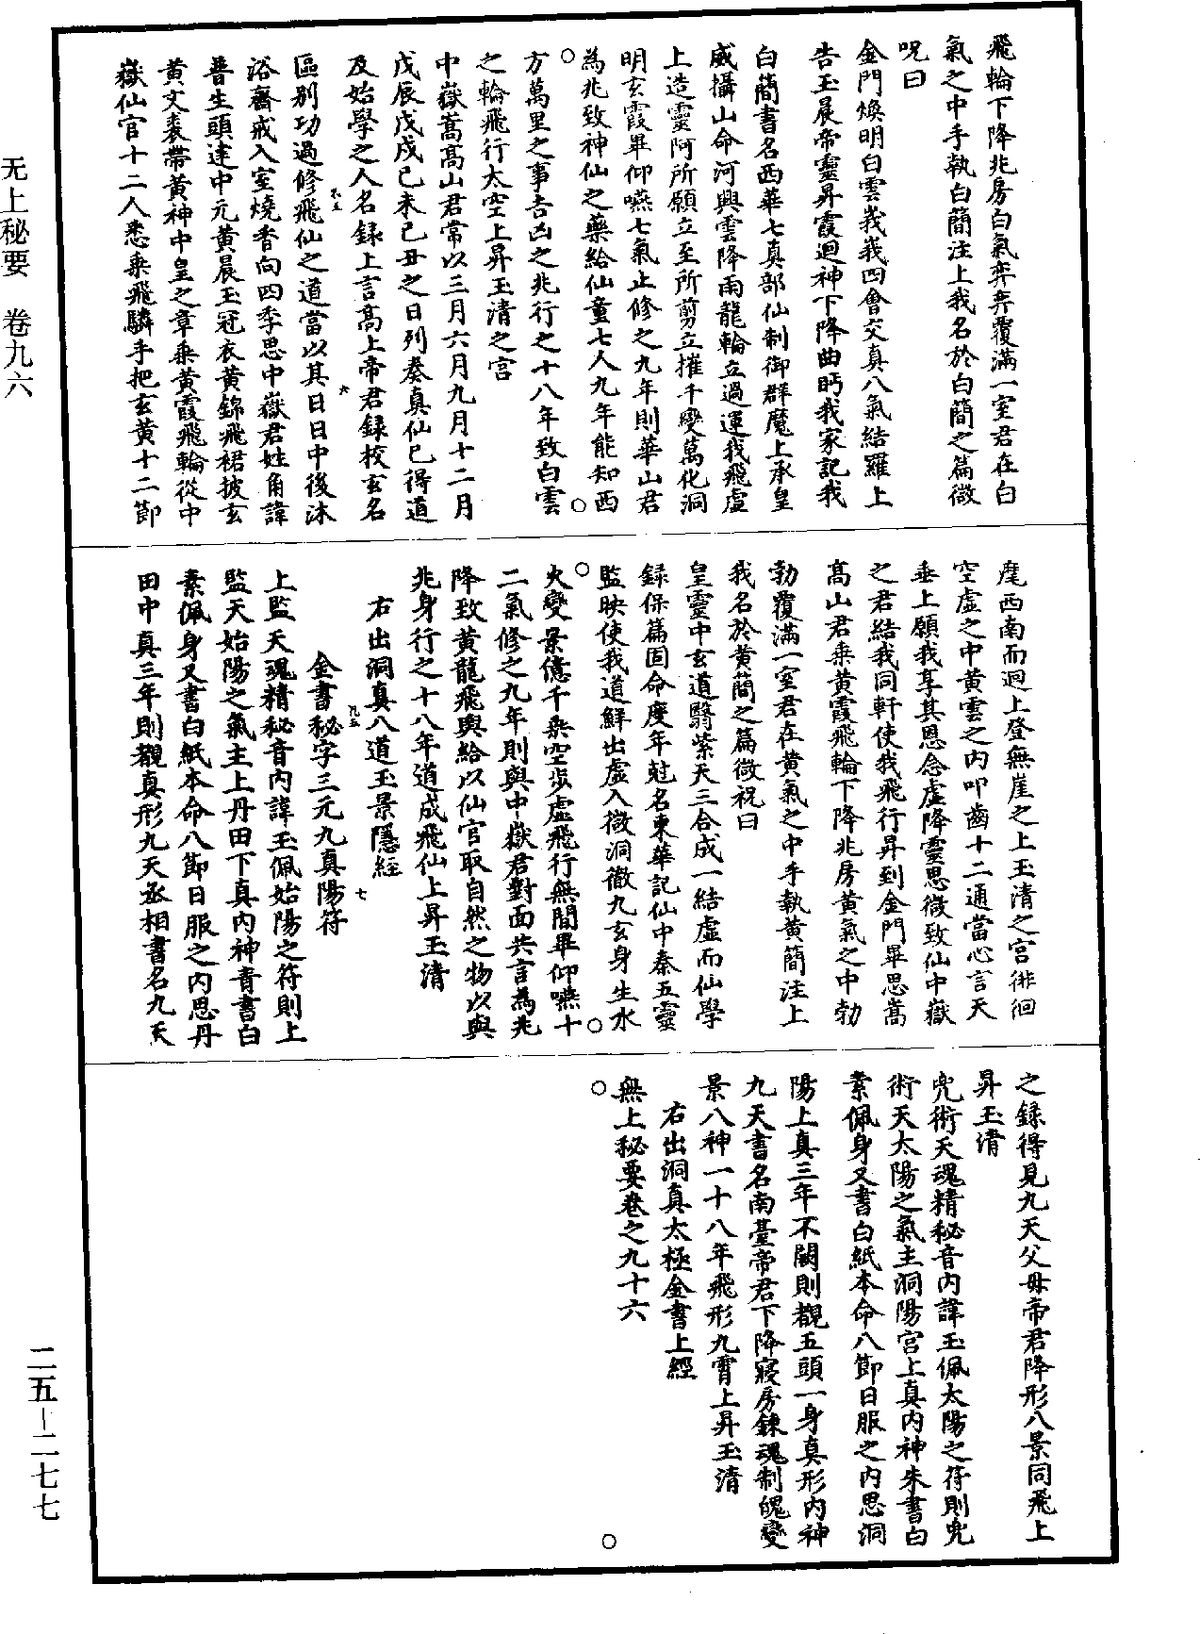 飛輪下降兆房白氣弈弈覆滿一室君在白
氣之中手執白簡注上我名於白簡之篇微
呪曰
金門煥明白雲峩峩四會交真八氣結羅上
告玉晨帝靈昇霞迴神下降曲眄我家記我
白簡書名西華七真部仙制御群魔上承皇
威攝山命河興雲降雨龍輪立過運我飛虛
上造靈阿所願立至所剪立摧千變萬化洞
明玄霞畢仰嚥七氣止修之九年則華山君
為兆致神仙之藥給仙童七人九年能知西
方萬里之事吉凶之兆行之十八年致白雲
之輪飛行太空上昇玉清之宮
中嶽嵩高山君常以三月六月九月十二月
戊辰戊戌己未己丑之日列奏真仙已得道
及始學之人名錄上言高上帝君錄校玄名
區別功過修飛仙之道當以其日日中後沐
浴齋戒入室燒香向四季思中嶽君姓角諱
普生頭建中元黃晨玉冠衣黃錦飛裙披玄
黃文裘帶黃神中皇之章乘黃霞飛輪從中
嶽仙官十二人悉乘飛驎手把玄黃十二節
麾西南而迴上登無崖之上玉清之宮徘徊
空虛之中黃雲之內叩齒十二通當心言天
垂上願我享其恩念虛降靈思微致仙中嶽
之君結我同軒使我飛行昇到金門畢思嵩
高山君乘黃霞飛輪下降兆房黃氣之中勃
勃覆滿一室君在黃氣之中手執黃簡注上
我名於黃簡之篇微祝曰
皇靈中玄道翳紫天三合成一結虛而仙學
錄保篇固命度年尅名東華記仙中秦五靈
監映使我道鮮出虛入微洞徹九玄身生水
火變景億千乘空步虛飛行無間畢仰嚥十
二氣修之九年則與中嶽君對面共言為兆
降致黃龍飛輿給以仙官取自然之物以與
兆身行之十八年道成飛仙上昇玉清
右出洞真八道玉景隱經
金書秘字三元九真陽符
上監天魂精秘音內諱玉佩始陽之符則上
監天始陽之氣主上丹田下真內神青書白
素佩身又書白紙本命八節日服之內思丹
田中真三年則覩真形九天丞相書名九天
之錄得見九天父母帝君降形八景同飛上
昇玉清
兜術天魂精秘音內諱玉佩太陽之符則兜
術天太陽之氣主洞陽宮上真內神朱書白
素佩身又書白紙本命八節日服之內思洞
陽上真三年不闕則覩五頭一身真形內神
九天書名南臺帝君下降寢房鍊魂制魄變
景八神一十八年飛形九霄上昇玉清
右出洞真太極金書上經
無上秘要卷之九十六
无上秘要 卷九六
二五-二七七